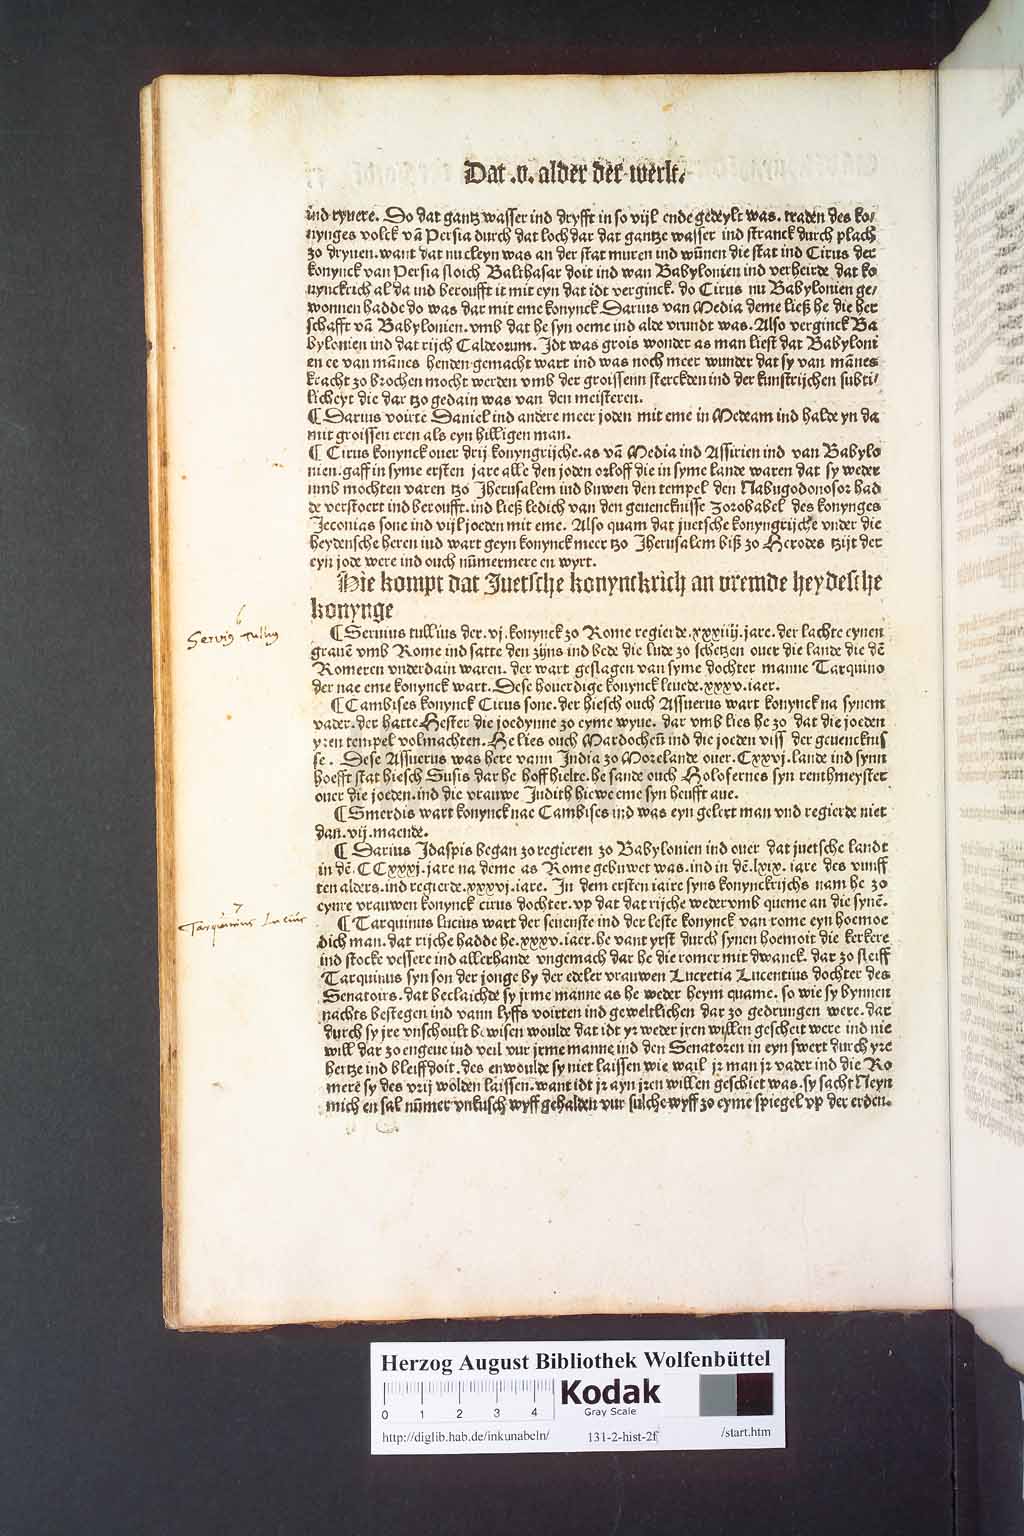 Dat .v. alder der werlt.
ind rynere. So dat gantz wasser ind dryfft in so vijl ende gedeylt was. traden des ko/
nynges volck vā Persia durch dat loch dar dat gantze wasser ind stranck durch plach
zo dryuen. want dat nu cleyn was an der stat muren ind wūnen die stat ind Cirus der
konynck van Persia sloich Balthasar doit ind wan Babylonien ind verheirde dat ko
nynckrich al da ind beroufft it mit eyn dat idt verginck. do Cirus nu Babylonien ge/
wonnen hadde do was dar mit eme konynck Darius van Media deme ließ he die her
schafft vā Babylonien. vmb dat he syn oeme ind alde vrundt was. Also verginck Ba
bylonien ind dat rijch Caldeorum. Idt was grois wonder as man liest dat Babyloni
en ee van mānes henden gemacht wart ind was noch meer wunder dat sy van mānes
kracht zo brochen mocht werden vmb der groissenn sterckden ind der kunstrijchen subti/
licheyt die dar tzo gedain was van den meisteren.
¶ Darius voirte Daniel ind andere meer joden mit eme in Medeam ind halde yn da
mit groissen eren als eyn hilligen man.
¶ Cirus konynck ouer drij konyngrijche. as vā Media ind Assirien ind van Babylo
nien. gaff in syme ersten jare alle den joden orloff die in syme lande waren dat sy weder
vmb mochten varen tzo Jherusalem ind buwen den tempel den Nabugodonosor had
de verstoert ind beroufft. ind ließ ledich van den geuencknisse Zorobabel des konynges
Jeconias sone ind vijl joeden mit eme. Also quam dat juetsche konyngrijche vnder die
heydensche heren ind wart geyn konynck meer tzo Jherusalem biß zo Herodes tzijt der
eyn jode were ind ouch nūmermere en wyrt.
Hie kompt dat Juetsche konynckrich an vremde heydesche
konynge
6
Servi9 Tulli9
¶ Seruius tullius der .vj. konynck zo Rome regierde .xxxiiij. jare. der lachte eynen
grauē vmb Rome ind satte den zijns ind bede die lude zo schetzen ouer die lande die dē
Romeren vnderdain waren. der wart geslagen van syme dochter manne Tarquino
der nae eme konynck wart. Dese houerdige konynck leuede .xxxv. iaer.
¶ Cambises konynck Cirus sone. der hiesch ouch Assuerus wart konynck na synem
vader. der hatte Hester die joedynne zo eyme wyue. dar vmb lies he zo dat die joeden
yren tempel volmachten. He lies ouch Mardocheū ind die joeden viss der geuencknis
se. Dese Assuerus was here vann India zo Morelande ouer .Cxxvj. lande ind synn
hoefft stat hiesch Susis dar he hoff hielte. he sande ouch Holofernes syn renthmeyster
ouer die joeden. ind die vrauwe Judith hiewe eme syn heufft aue.
¶ Smerdis wart konynck nae Cambises ind was eyn gelert man vnd regierde niet
dan .vij. maende.
¶ Darius Idaspis began zo regieren zo Babylonien ind ouer dat juetsche landt
in dē .CCxxxj. jare na deme as Rome gebuwet was. ind in dē .lxix. iare des vunff
ten alders. ind regierde .xxxvj. iare. In dem ersten iaire syns konynckrijchs nam he zo
eynre vrauwen konynck cirus dochter. vp dat dat rijche wedervmb queme an die synē.
7
Tarquinius Lucius
¶ Tarquinus lucius wart der seuenste ind der leste konynck van rome eyn hoemoe
dich man. dat rijche hadde he .xxxv. iaer. he vant yrst durch synen hoemoit die kerkere
ind stocke vessere ind allerhande vngemach dar he die romer mit dwanck. dar zo sleiff
Tarquinus syn son der jonge by der edeler vrauwen Lucretia Lucentius dochter des
Senatoirs. dat beclaichde sy jrme manne as he weder heym quame. so wie sy bynnen
nachts bestegen ind vann lyffs voirten ind geweltlichen dar zo gedrungen were. dar
durch sy jre vnschoult bewisen woulde dat idt yr weder jren willen gescheit were ind nie
will dar zo engeue ind veil vur jrme manne ind den Senatoren in eyn swert durch yre
hertze ind bleiff doit. des enwoulde sy niet laissen wie wail jr man jr vader ind die Ro
merē sy des vrij wolden laissen. want idt jr ayn jren willen geschiet was. sy sacht Neyn
mich en sal nūmer vnkusch wyff gehalden vur sulche wyff zo eyme spiegel vp der erden.
Herzog August Bibliothek Wolfenbüttel
Kodak
Gray Scale
0 1 2 3 4
http://diglib.hab.de/inkunabeln/ 131-2-hist-2f /start.htm